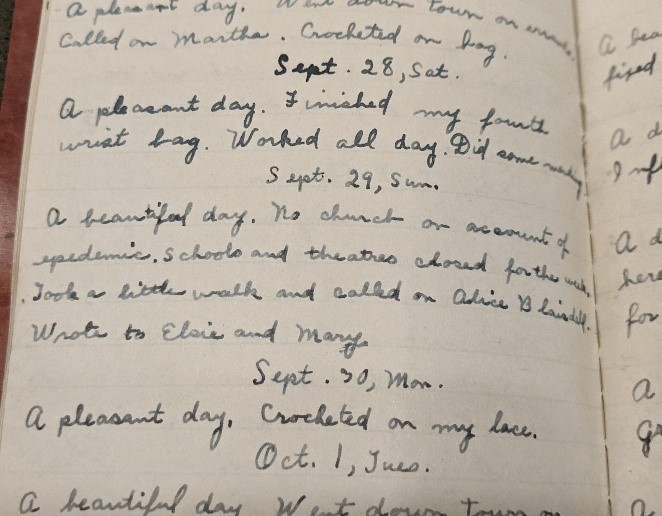 A pleasant day. Went down town on
Called on Martha. Crocheted on bag.
Sept. 28, Sat.
A pleasant day. Finished my fourth
wrist bag. Worked all day. Did some mending
Sept. 29, Sun.
A beautiful day. No church on account of
epedemic. Schools and theatres closed for the week.
Took a little walk and called on Alice Blaisdell.
Wrote to Elsie and Mary.
Sept. 30, Mon.
A pleasant day. Crocheted on my lace.
Oct. 1, Tues.
A beautiful day Went down town on
A
fixed
A d
I
A d
here
for
A